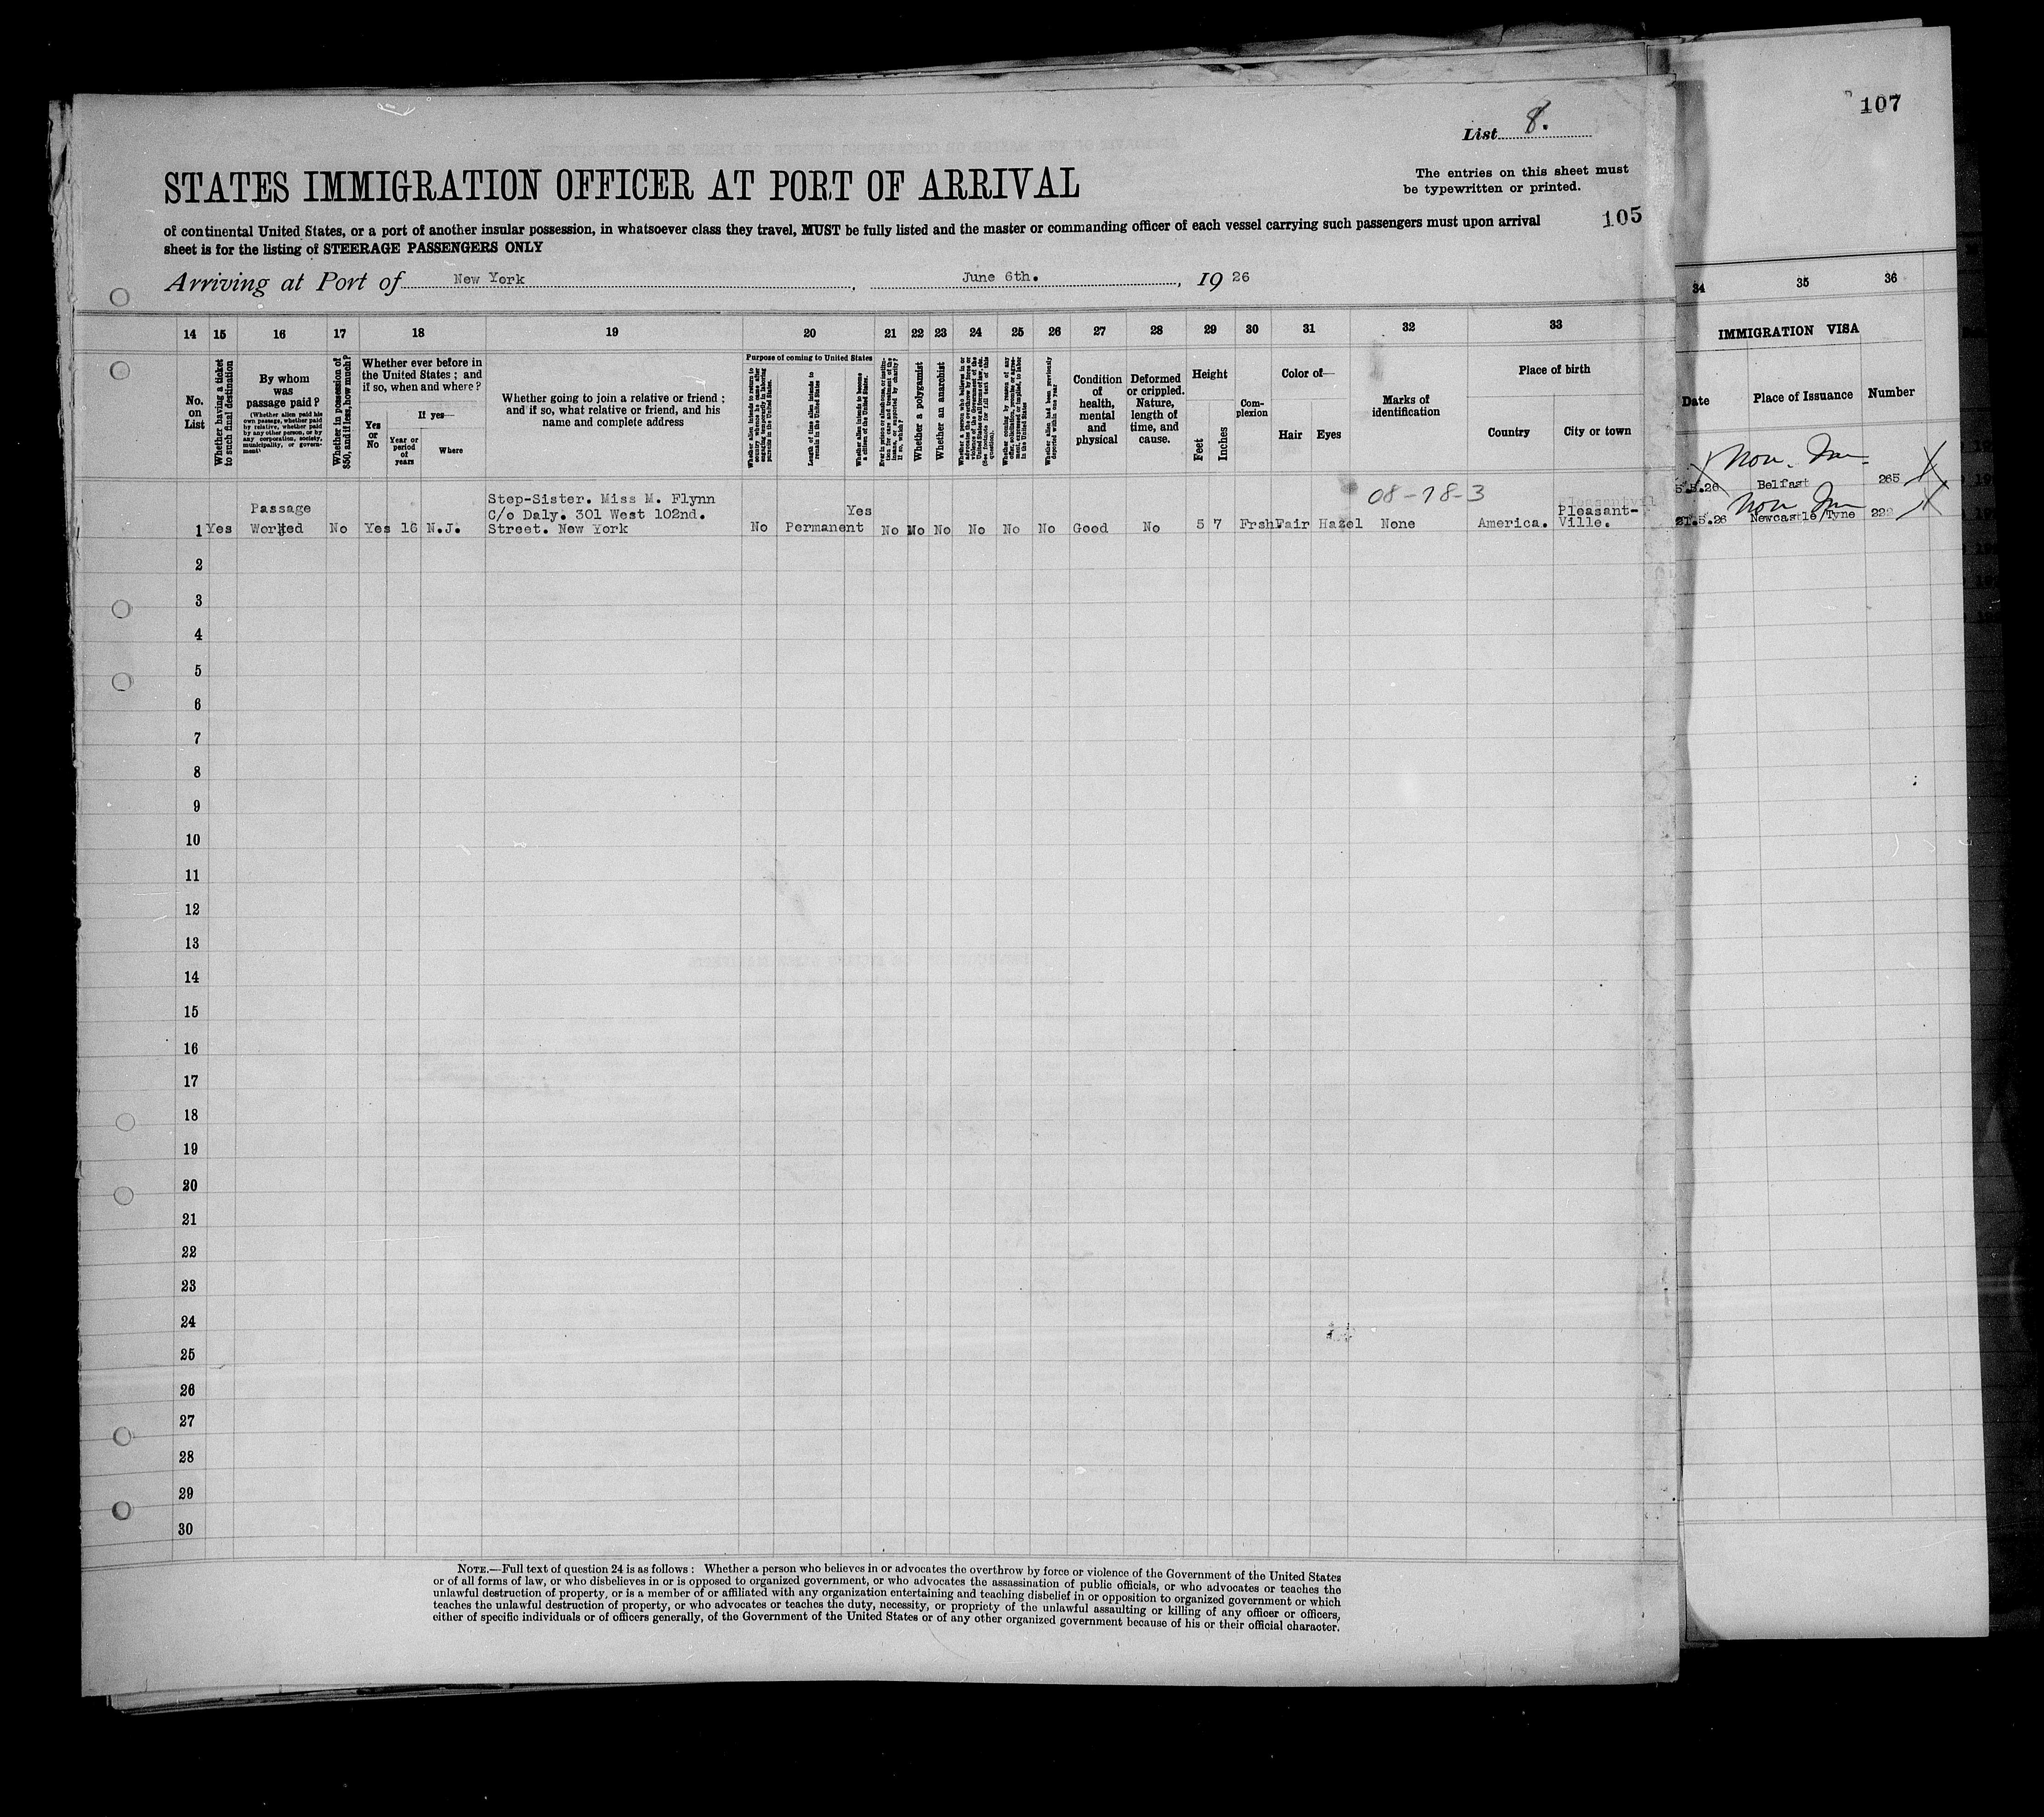 107
List 8.
STATES IMMIGRATION OFFICER AT PORT OF ARRIVAL
The entries on this sheet must
be typewritten or printed.
105
of continental United States, or a port of another insular possession, in whatsoever class they travel, MUST be fully listed and the master or commanding officer of each vessel carrying such passengers must upon arrival
sheet is for the listing of STEERAGE PASSENGERS ONLY
Arriving at Port of New York, June 6th., 19 26
14 15 16 17 18 19 20 21 22 23 24 25 26 27 28 29 30 31 32 33
34 35 36
No.
on
List
Whether having a ticket
to such final destination
By whom
was
passage paid?
(Whether alien paid his
own passage, whether paid
by relative, whether paid
by any other person, or by
any corporation, society,
municipality, or govern-
ment)
Whether in possession of
$50, and if less, how much?
Whether ever before in
the United States; and
if so, when and where?
Yes
or
No
If yes—
Year or
period
of
years
Where
Whether going to join a relative or friend;
and if so, what relative or friend, and his
name and complete address
Purpose of coming to United States
Whether alien intends to return to
country whence he came after
engaging temporarily in laboring
pursuits in the United States.
Length of time alien intends to
remain in the United States
Whether alien intends to become
a citizen of the United States.
Ever in prison or almshouse, or institu-
tion for care and treatment of the
insane, or supported by charity?
If so, which?
Whether a polygamist
Whether an anarchist
Whether a person who believes in or
advocates the overthrow by force or
violence of the Government of the
United States or all forms of law, etc.
(See footnote for full text of this
question).
Whether coming by reason of any
offer, solicitation, promise or agree-
ment, expressed or implied, to labor
in the United States
Whether alien had been previously
deported within one year
Condition
of
health,
mental
and
physical
Deformed
or crippled.
Nature,
length of
time, and
cause.
Height
Feet
Inches
Com-
plexion
Color of—
Hair
Eyes
Marks of
identification
Place of birth
Country
City or town
IMMIGRATION VISA
Date
Place of Issuance
Number
Non. Im
5.5.26 Belfast 265
Non Im
21.5.26 Newcastle/Tyne 222
08-78-3
Passage
Step-Sister. Miss M. Flynn
C/o Daly. 301 West 102nd.
Yes
Pleasant-
1 Yes Worked No Yes 16 N.J. Street. New York No Permanent No No No No No No Good No 5 7 Frsh Fair Hazel None America. Ville.
2
3
4
5
6
7
8
9
10
11
12
13
14
15
16
17
18
19
20
21
22
23
24
25
26
27
28
29
30
NOTE.—Full text of question 24 is as follows: Whether a person who believes in or advocates the overthrow by force or violence of the Government of the United States
or of all forms of law, or who disbelieves in or is opposed to organized government, or who advocates the assassination of public officials, or who advocates or teaches the
unlawful destruction of property, or is a member of or affiliated with any organization entertaining and teaching disbelief in or opposition to organized government or which
teaches the unlawful destruction of property, or who advocates or teaches the duty, necessity, or propriety of the unlawful assaulting or killing of any officer or officers,
either of specific individuals or of officers generally, of the Government of the United States or of any other organized government because of his or their official character.